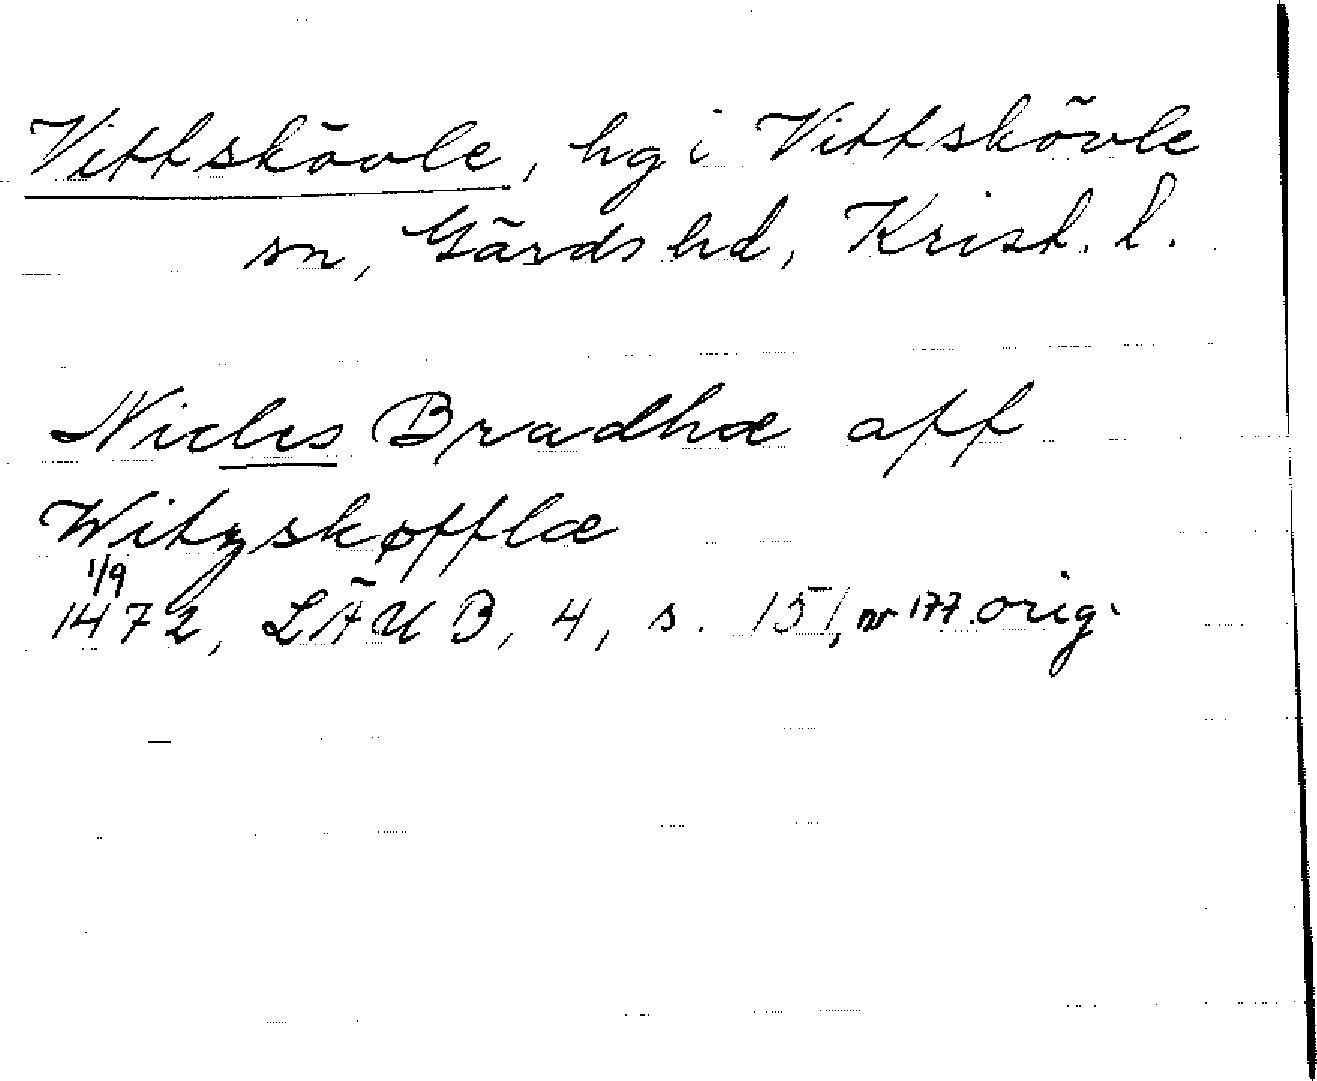 Vittskövle, hg i Vittskövle
sn, Gärds hd, Krist. l.
Niclis Bradhæ aff
Witzskøfflæ
1/9
1472, LÄUB, 4, s. 151, nr 177. orig.